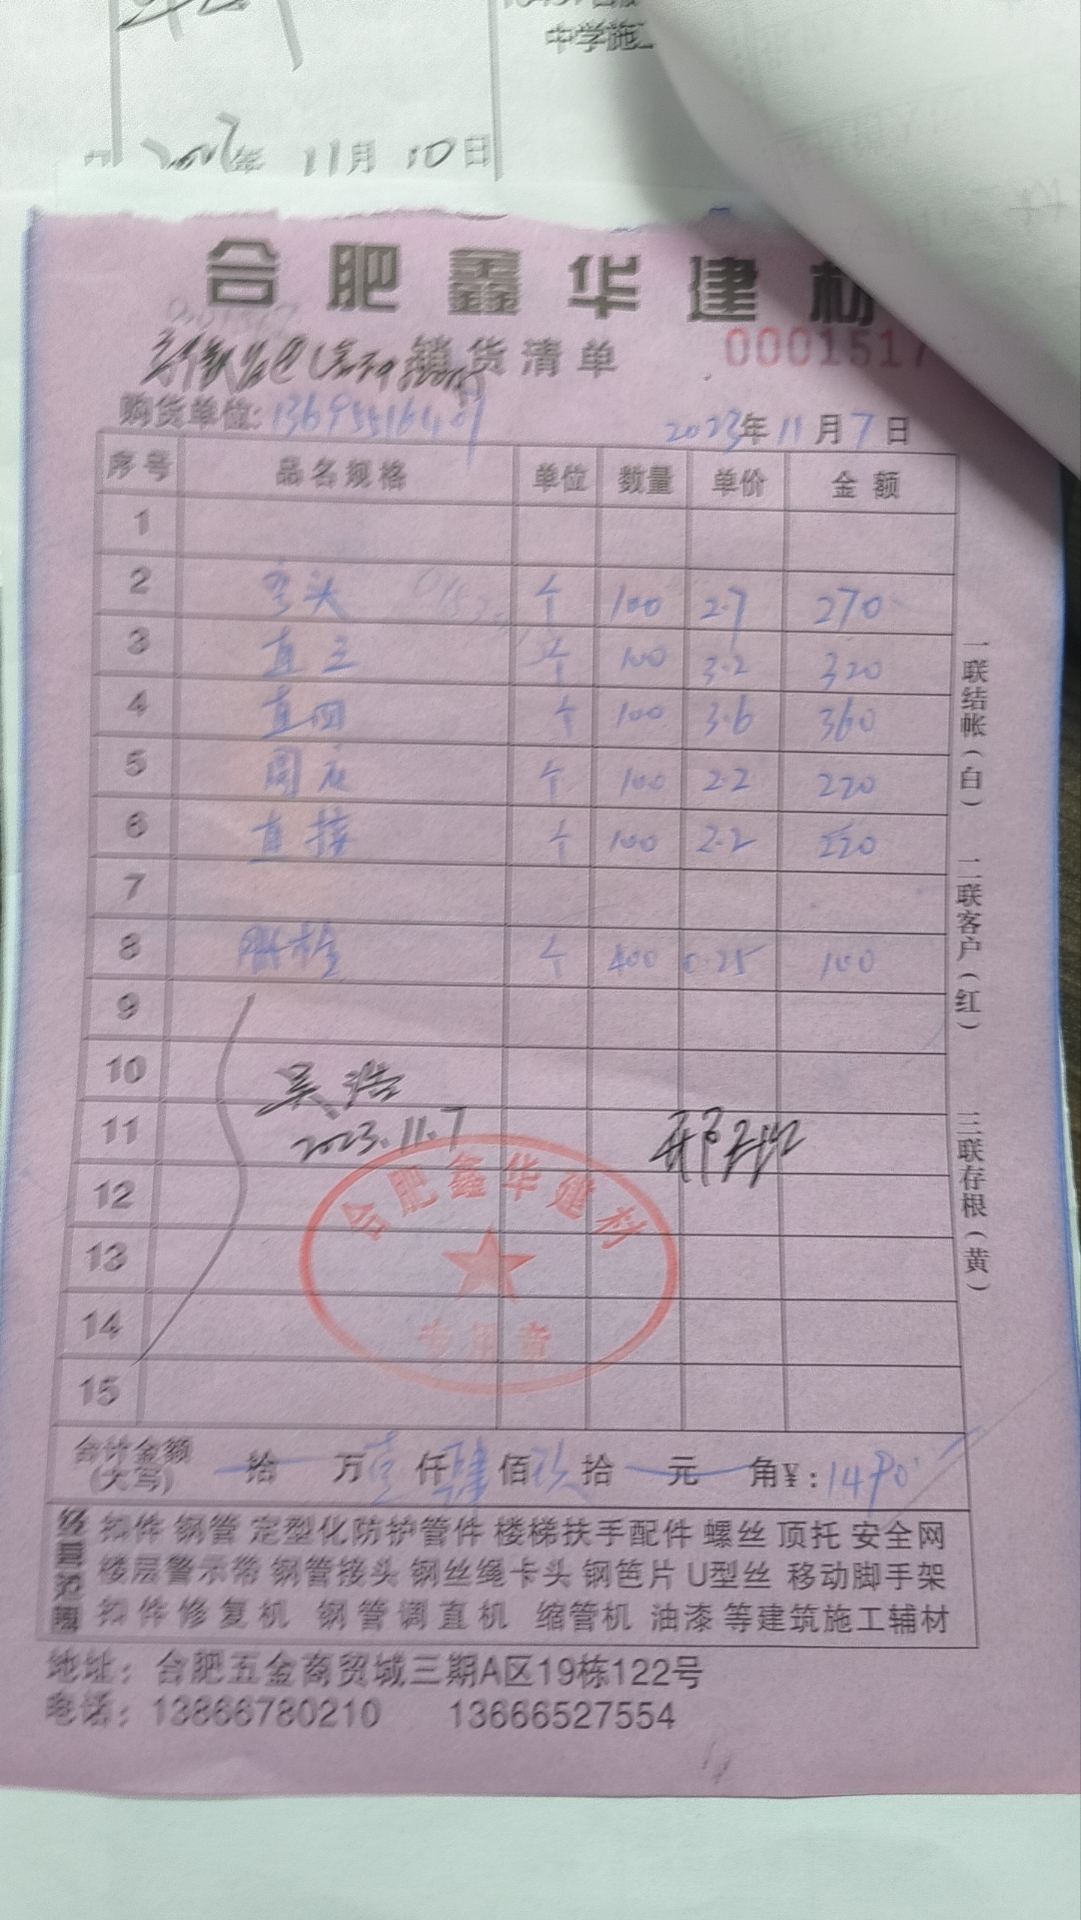 中学施工
年 11月 10日
合肥鑫华建材
销货清单
0001517
购货单位:13695516401
2023年11月7日
序号 品名规格 单位 数量 单价 金额
1
2 弯头 个 100 2.7 270
3 直三 个 100 3.2 320
4 直四 个 100 3.6 360
5 个 100 2.2 220
6 直接 个 100 2.2 220
7
8 个 400 0.25 100
9
10 吴浩
11 2023.11.7
12
13
14
15
合肥鑫华建材
专用章
合计金额(大写) 拾 万 壹 仟 肆 佰 玖 拾 元 角 ¥:1490
经营范围
扣件 钢管 定型化防护管件 楼梯扶手配件 螺丝 顶托 安全网
楼层警示带 钢管接头 钢丝绳卡头 钢笆片 U型丝 移动脚手架
扣件修复机 钢管调直机 缩管机 油漆 等建筑施工辅材
地址：合肥五金商贸城三期A区19栋122号
电话：13866780210 13666527554
一联结帐(白)
二联客户(红)
三联存根(黄)